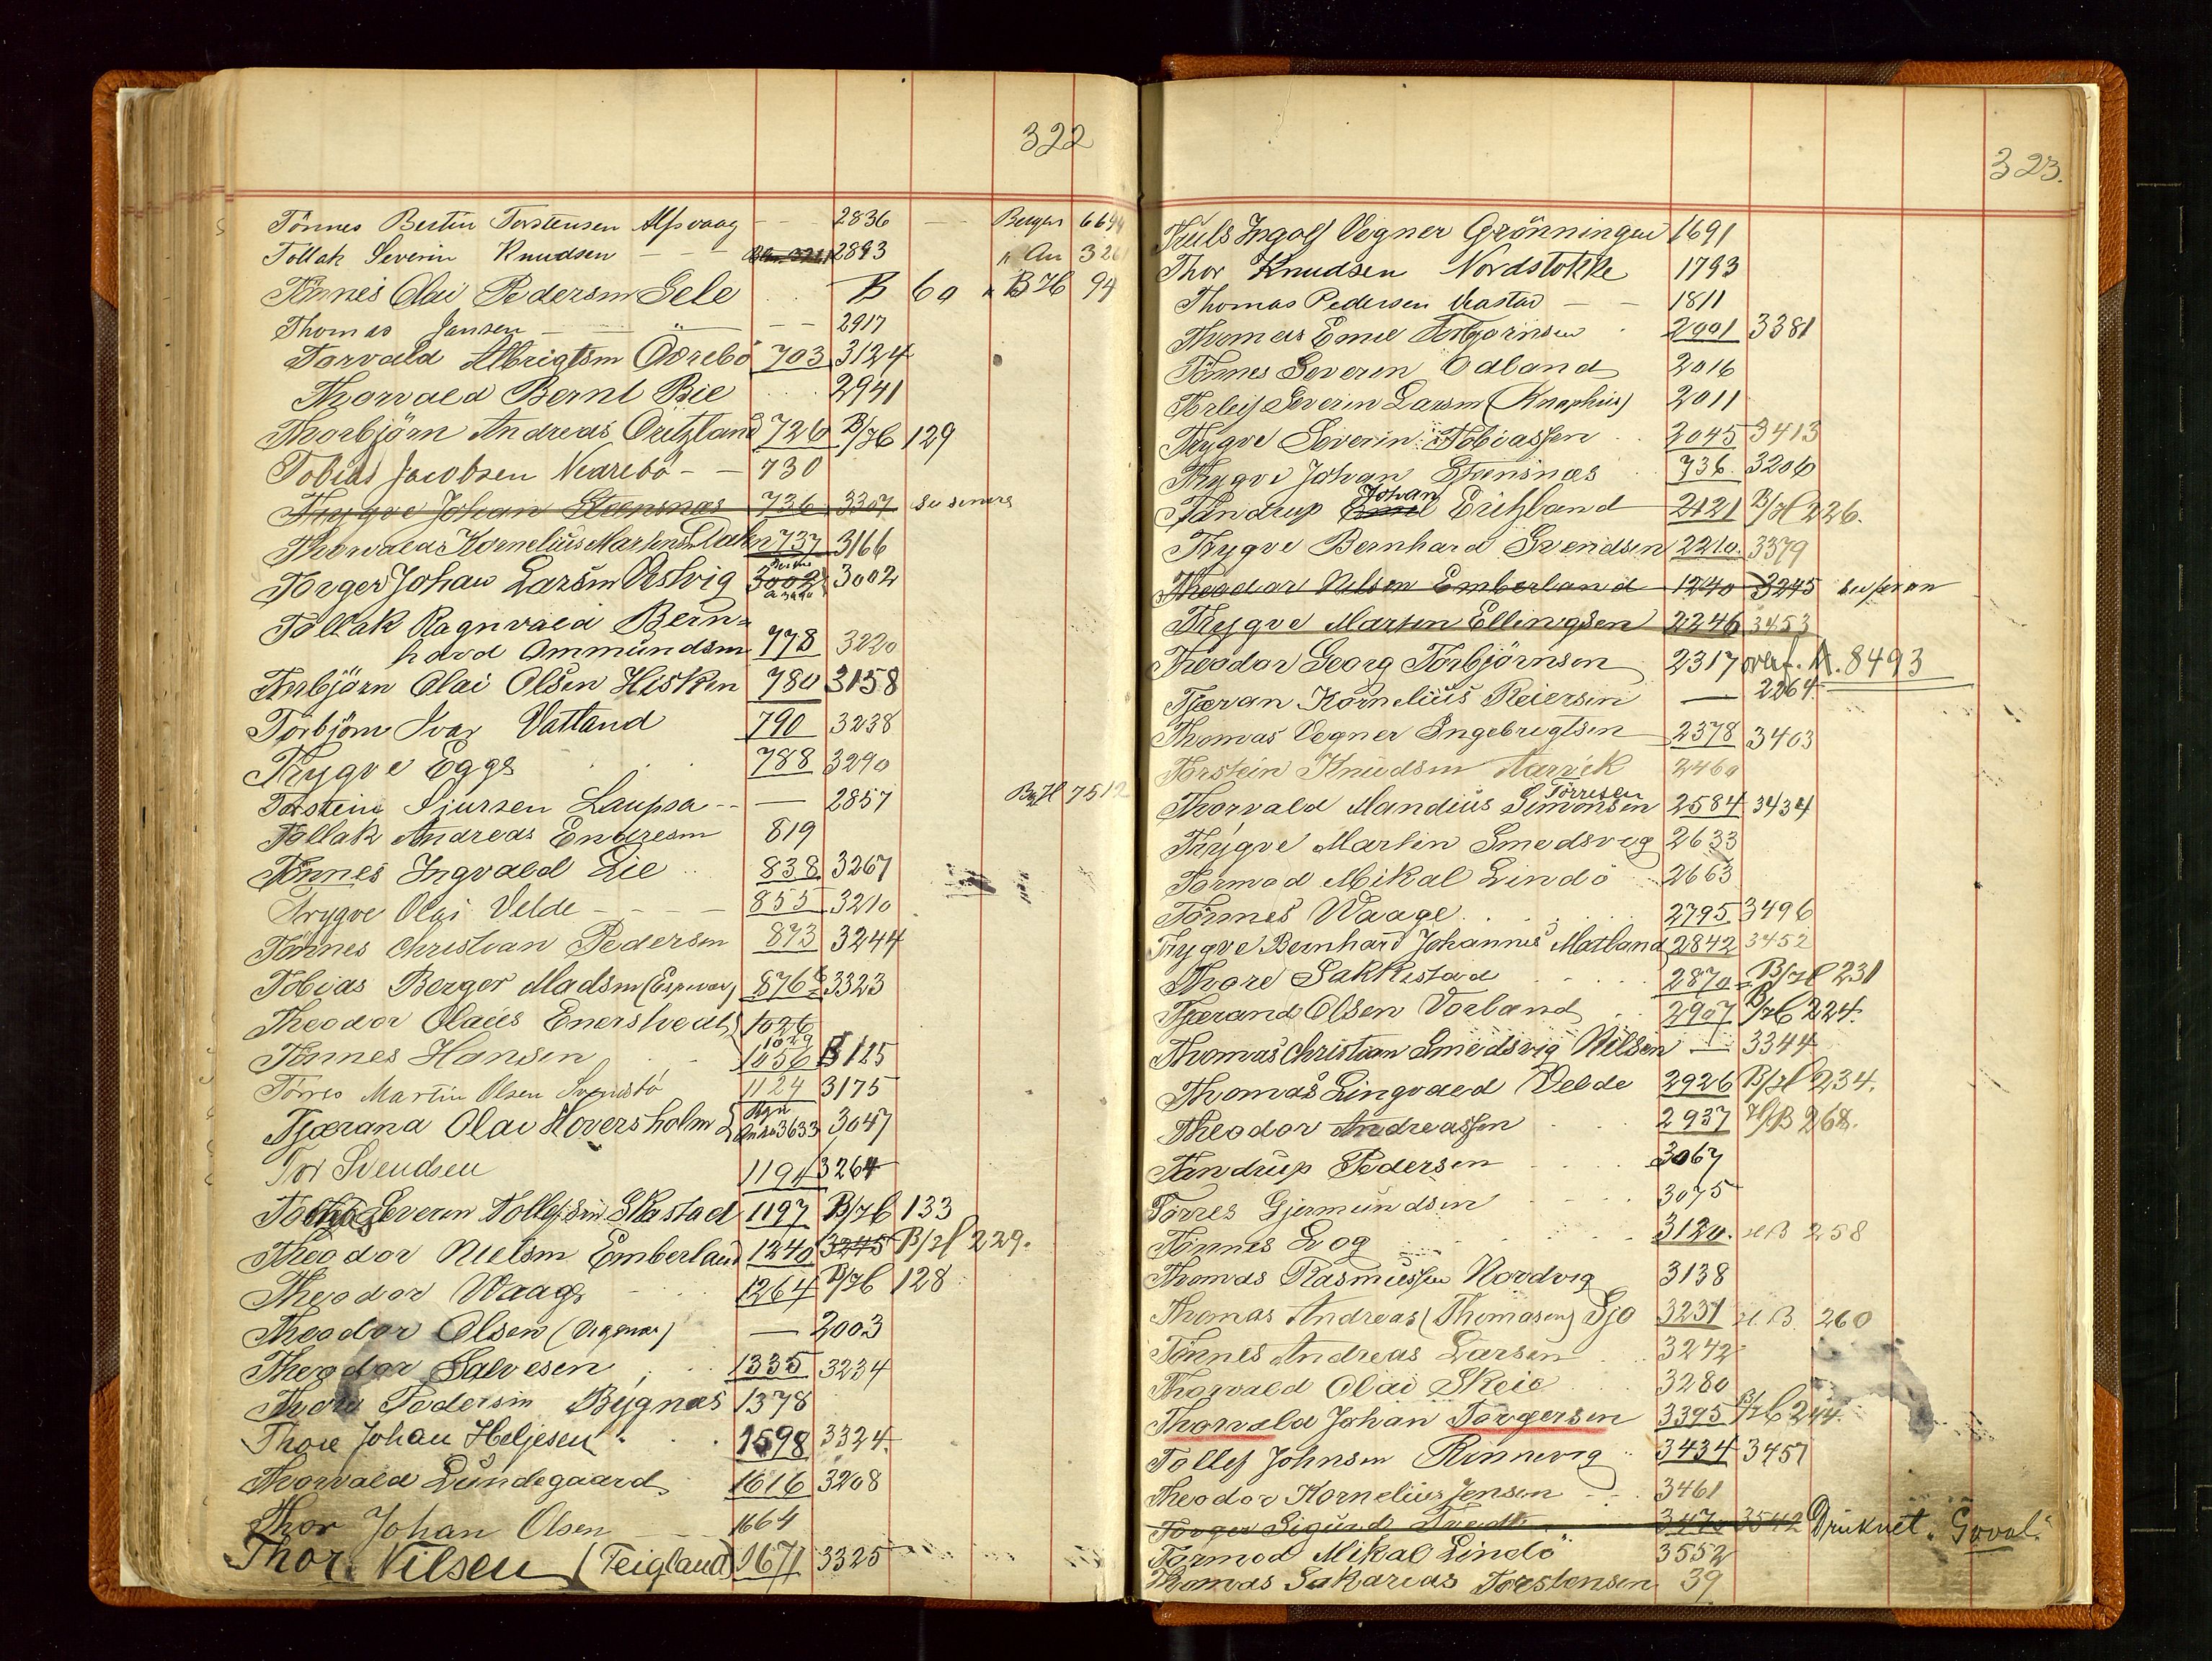 322
Tönnes Bertin Torstensen Alfsvaag — 2836 — Bergen
Tollak Severin Knudsen — 2893 " Au
Tönnes Olai Pedersen Sele B 60 " B H 94
Thomas Jansen — 2917
Torvald Albrigtsen Övrebö 703 3124
Thorvald Bernt Bie 2941
Thorbjörn Andreas 726 B/H 129
Tobias Jacobsen Nedrebö — 730
Trygve Johan Steensnæs 736 3307 se senere
Thorvald Kornelius Martinsen 737 3166
Torger Johan Larsen Vestvig 3002 3002
Tollak Ragnvald Bern=
hard Ommundsen 778 3220
Torbjörn Olai Olsen Hisken 780 3158
Torbjörn Ivar Vatland 790 3238
Trygve Egge 788 3290
Torstein Sjursen Laupsa — 2857 7512
Tollak Andreas Endresen 819
Tönnes Ingvald Lie 838 3267
Trygve Olai Velde — 855 3210
Tönnes Christian Pedersen 873 3244
Tobias Berger Madsen (Espevær) 876 3323
Theodor Olaus Enerstvedt 1026
1029
Tönnes Hansen 1056 B 125
Törres Martin Olsen 1124 3175
Tjærand Olai Hoversholm 3633 3047
Tor Svendsen 1194 3264
Severin Tollefsen Skastad 1197 B/H 133
Theodor Nielsen Emberland 1240 3245 B/H 229.
Theodor Waage 1264 B/H 128
Theodor Olsen — 2003
Theodor Salvesen 1335 3234
Thore Pedersen Bygnæs 1378
Thore Johan Heljesen 1598 3324.
Thorvald Lundegaard 1616 3208
Thor Johan Olsen — 1664
Thor Nilsen (Feigland) 1671 3325
323.
Truls Ingolf Vegner Grönningen 1691
Thor Knudsen Nordstokke 1793
Thomas Pedersen — 1811
Thomas Emil Torbjörnsen 2001 3381
Tönnes Severin Odland 2016
Torleif Severin Larsen (Knaphus) 2011
Trygve Severin Tobiassen 2045 3413
Trygve Johan Steensnæs 736 3206
Tandrup Emil Johan Eritzland 2121 B/H 226.
Trygve Bernhard Svendsen 2210. 3379
Theodor Nilsen Emberland 1240 3245
Trygve Martin Ellingsen 2246 3453
Theodor Georg Torbjörnsen 2317 overf. A. 8493
Tjæran Kornelius Reiersen — 2264
Thomas Vegner Ingebrigtsen 2378 3403
Torstein Knudsen Aarvik 2460
Thorvald Mandius Simonsen Törresen 2584 3434
Trygve Martin Smedsvig 2633
Tormod Mikal Lindö 2663
Tönnes Waage 2795 3496
Trygve Bernhard Johannes Matland 2842 3452
Thore Sakkestad 2870 B/H 231
Tjærand Olsen Vorland 2907 B/H 224.
Thomas Christian Smedsvig Nilsen — 3344
Thomas Lingvald Velde 2926 B/H 234.
Theodor Andreassen 2937 H/B 268.
Tandrup Pedersen 3067
Törres Gjermundsen 3075
Tönnes Log 3120. H B 258
Thomas Rasmussen Nordvig 3138
Thomas Andreas (Thomasen) Sjo 3231 H. B. 260
Tönnes Andreas Larsen 3242
Thorvald Olai Skeie 3280
Thorvald Johan Torgersen 3395 B/H 244.
Tollef Johnsen Rinnevig 3434 3457
Theodor Kornelius Jensen 3461
Torger Sigurd Tvedt 3470 3542 Druknet "Goval"
Tormod Mikal Lindö 3552
Thomas Sakarias Torstensen 39